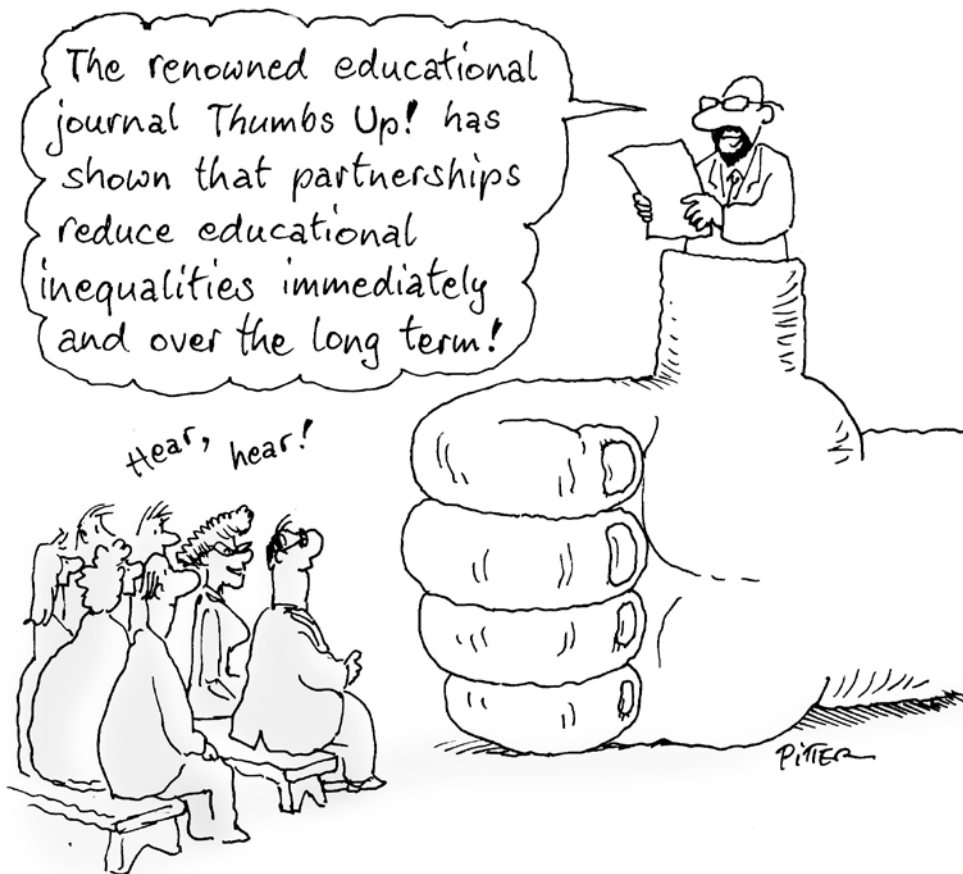 The renowned educational
journal Thumbs Up! has
shown that partnerships
reduce educational
inequalities immediately
and over the long term!
Hear, hear!
PiTTER